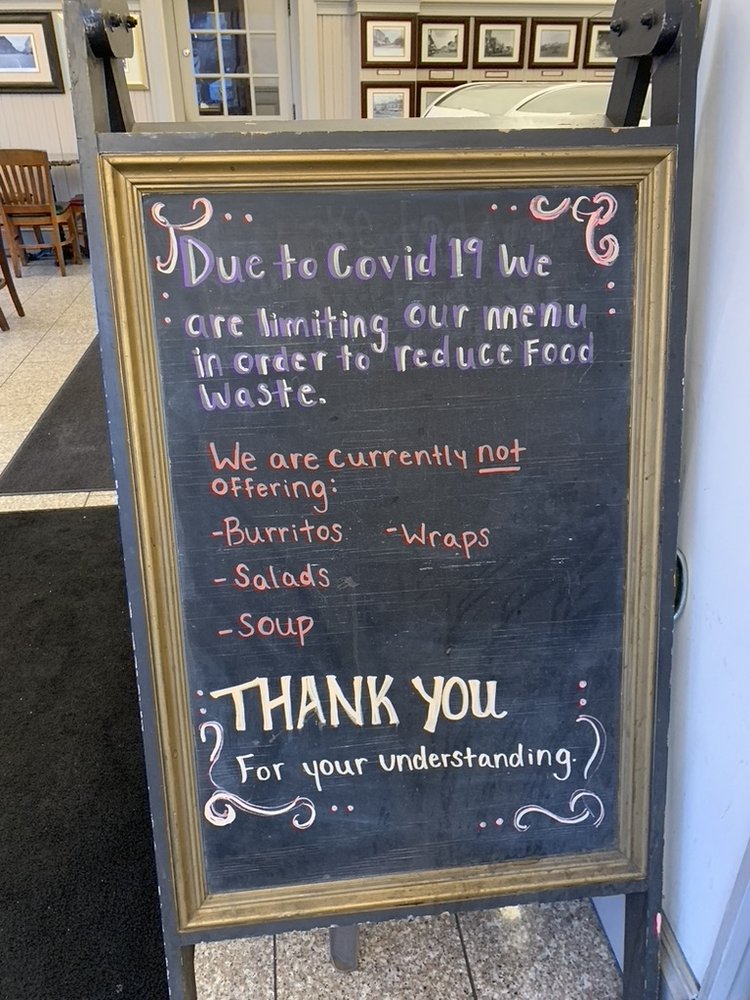 Due to Covid 19 We
are limiting our menu
in order to reduce Food
Waste.
We are currently not
offering:
-Burritos -Wraps
-Salads
-Soup
THANK YOU
For your understanding.